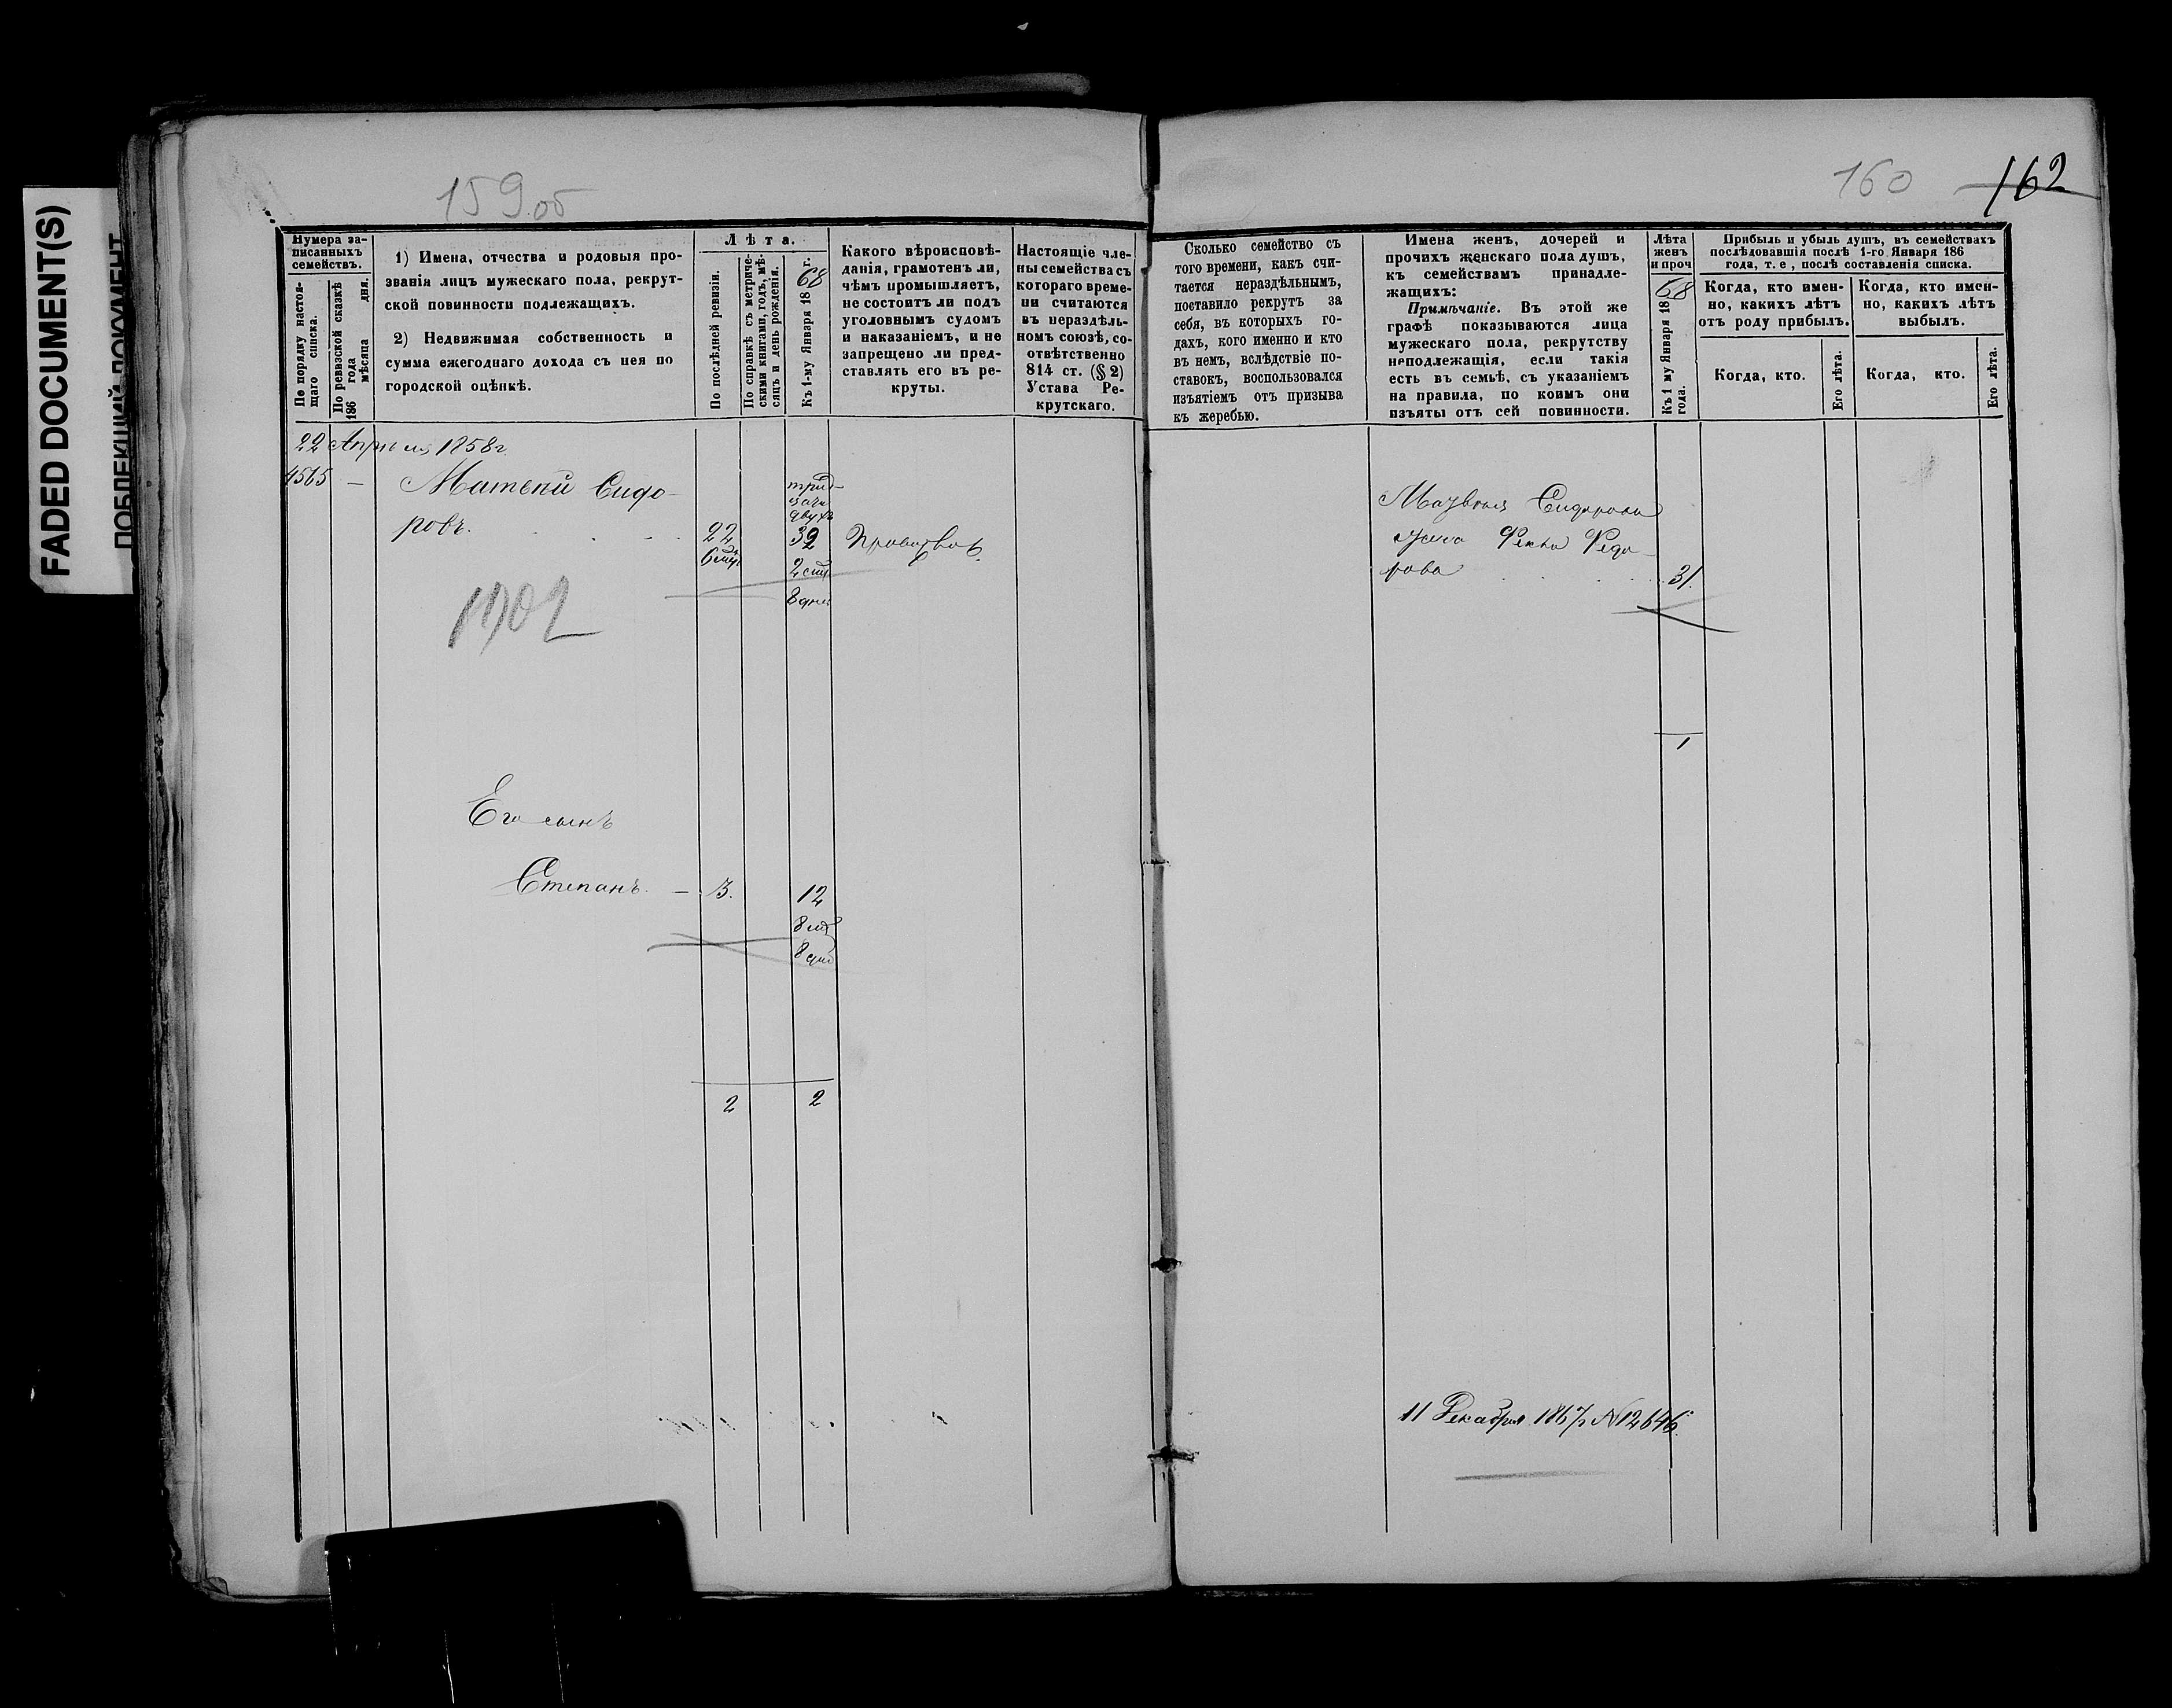 FADED DOCUMENT(S)
159 об
160
162
Нумера за-
писанныхъ
семействъ.
По порядку настоя-
щаго списка.
По ревизской сказкѣ
186 года
мѣсяца дня.
1) Имена, отчества и родовыя про-
званія лицъ мужескаго пола, рекрут-
ской повинности подлежащихъ.
2) Недвижимая собственность и
сумма ежегоднаго дохода съ нея по
городской оцѣнкѣ.
Лѣта.
По послѣдней ревизіи.
По справкѣ съ метриче-
скими книгами, годъ, мѣ-
сяцъ и день рожденія.
Къ 1-му Января 1868 г.
Какого вѣроисповѣ-
данія, грамотенъ ли,
чѣмъ промышляетъ,
не состоитъ ли подъ
уголовнымъ судомъ
и наказаніемъ, и не
запрещено ли пред-
ставлять его въ ре-
круты.
Настоящіе чле-
ны семейства съ
котораго време-
ни считаются
въ нераздѣль-
номъ союзѣ, со-
отвѣтственно
814 ст. (§ 2)
Устава Ре-
крутскаго.
Сколько семейство съ
того времени, какъ счи-
тается нераздѣльнымъ,
поставило рекрутъ за
себя, въ которыхъ го-
дахъ, кого именно и кто
въ немъ, вслѣдствіе по-
ставокъ, воспользовался
изъятіемъ отъ призыва
къ жеребью.
Имена женъ, дочерей и
прочихъ женскаго пола душъ,
къ семействамъ принадле-
жащихъ:
Примѣчаніе. Въ этой же
графѣ показываются лица
мужескаго пола, рекрутству
неподлежащія, если такія
есть въ семьѣ, съ указаніемъ
на правила, по коимъ они
изъяты отъ сей повинности.
Лѣта
женъ
и проч
Къ 1 му Января 1868
года.
Прибыль и убыль душъ, въ семействахъ
послѣдовавшія послѣ 1-го Января 186
года, т. е, послѣ составленія списка.
Когда, кто имен-
но, какихъ лѣтъ
отъ роду прибылъ.
Когда, кто.
Его лѣта.
Когда, кто имен-
но, какихъ лѣтъ
выбылъ.
Когда, кто.
Его лѣта.
22 Апрѣля 1858 г.
4565 — Матвѣй Сидо-
ровъ. 22 32
2
8 дней
Сидорова
жена Федо-
рова 31.
1
Его сынъ
Степанъ. — 3. 12
8
8 дней
2 2
11 Декабря 1867 г. №12646